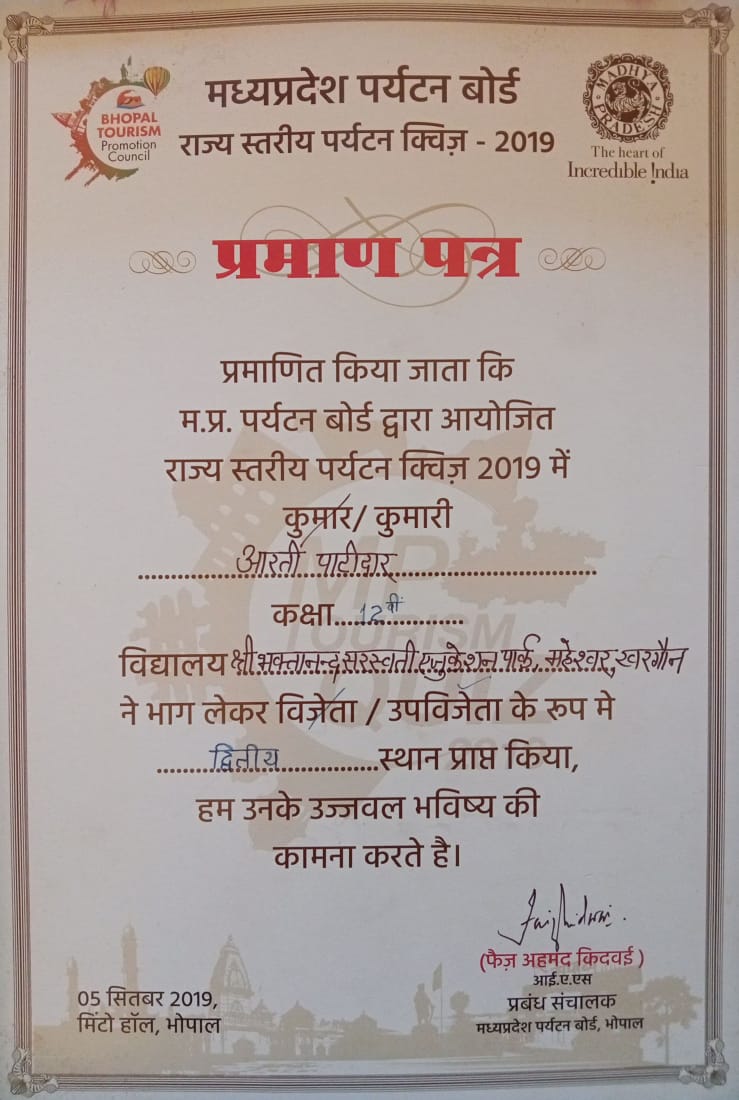 BHOPAL
TOURISM
Promotion
Council
मध्यप्रदेश पर्यटन बोर्ड
राज्य स्तरीय पर्यटन क्विज़ - 2019
MADHYA PRADESH
The heart of
Incredible !ndia
प्रमाण पत्र
प्रमाणित किया जाता कि
म.प्र. पर्यटन बोर्ड द्वारा आयोजित
राज्य स्तरीय पर्यटन क्विज़ 2019 में
कुमार/ कुमारी
आरती पाटीदार
कक्षा.....12वीं..............
विद्यालय श्री भक्तानन्द सरस्वती एजुकेशन पार्क, महेश्वर, खरगौन
ने भाग लेकर विजेता / उपविजेता के रूप मे
द्वितीय स्थान प्राप्त किया,
हम उनके उज्जवल भविष्य की
कामना करते है।
MP
TOURISM
QUIZ
2019
(फैज़ अहमद किदवई)
आई.ए.एस
प्रबंध संचालक
मध्यप्रदेश पर्यटन बोर्ड, भोपाल
05 सितबर 2019,
मिंटो हॉल, भोपाल